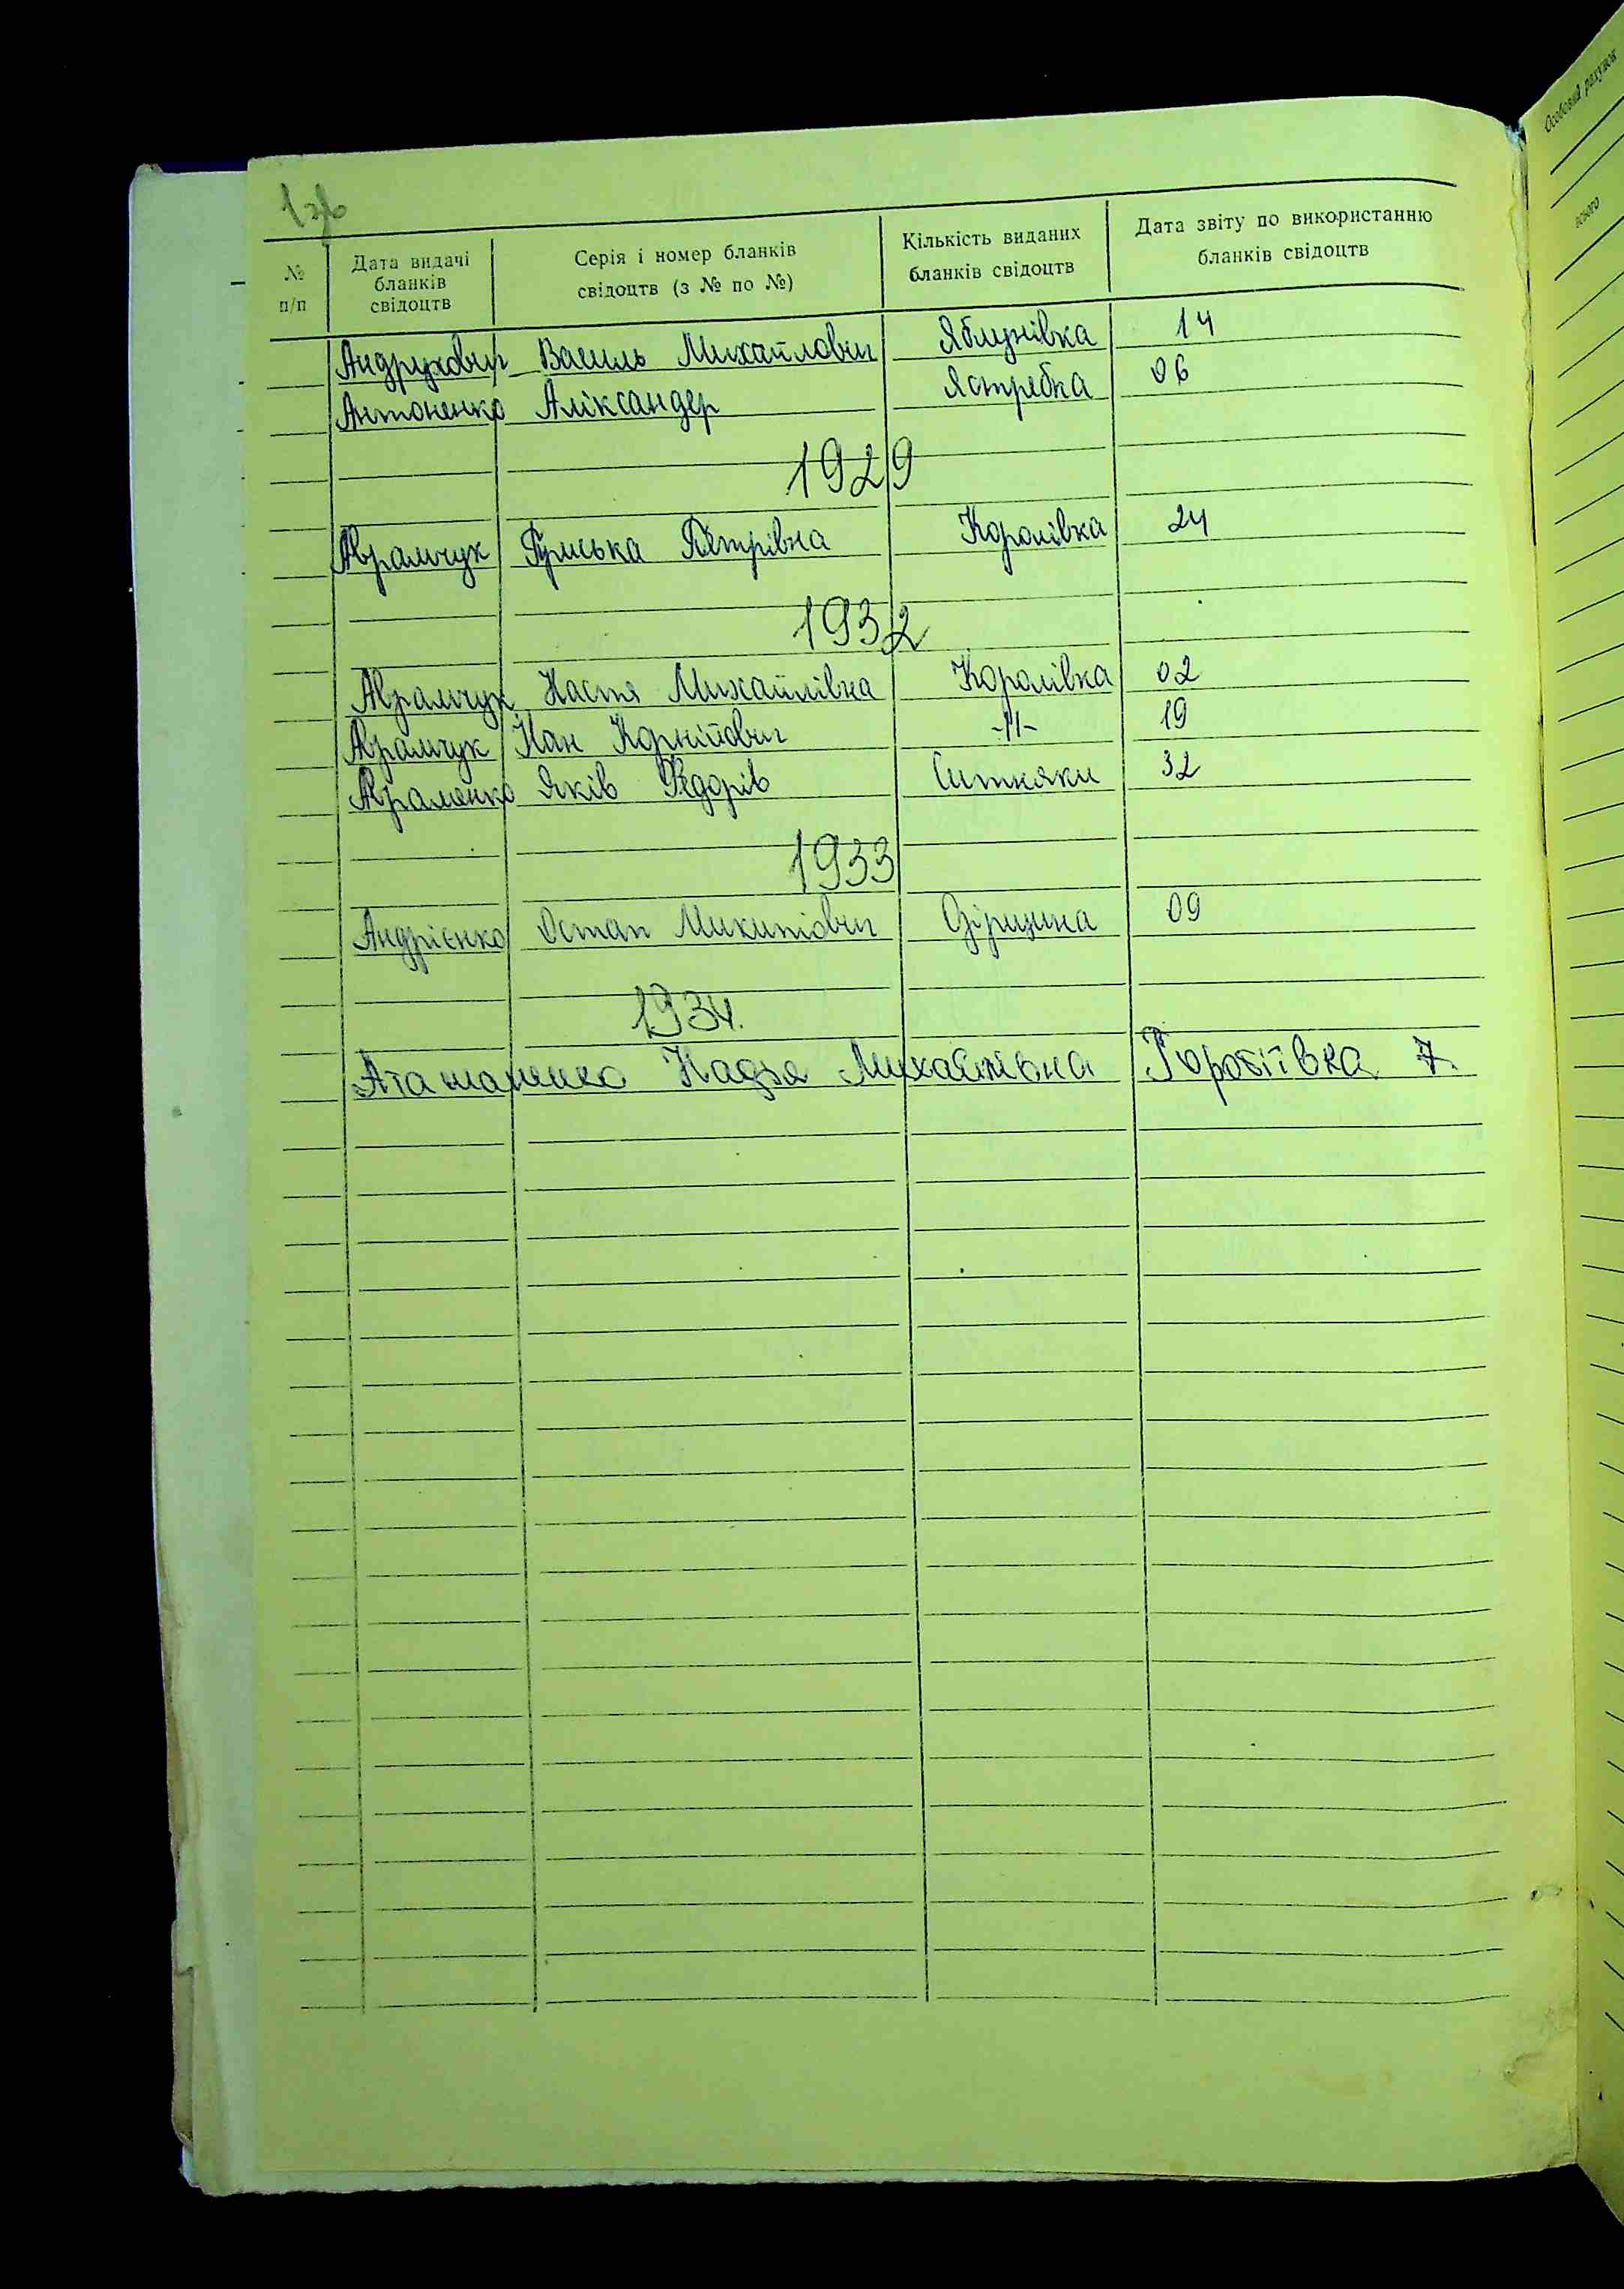 1зв
№ п/п Дата видачі бланків свідоцтв Серія і номер бланків свідоцтв (з № по №) Кількість виданих бланків свідоцтв Дата звіту по використанню бланків свідоцтв
Андрухович Василь Михайлович Яблунівка 14
Антоненко Аліксандер Ястребка 06
1929
Аврамчук Пятрівна Королівка 24
1932
Аврамчук Настя Михайлівна Королівка 02
Аврамчук Іван Корнійович -11- 19
Авраменко Яків Федорів Ситняки 32
1933
Андрієнко Остап Микитович 09
1934.
Атаманенко Надія Михайлівна 7
Особовий рахунок
всього